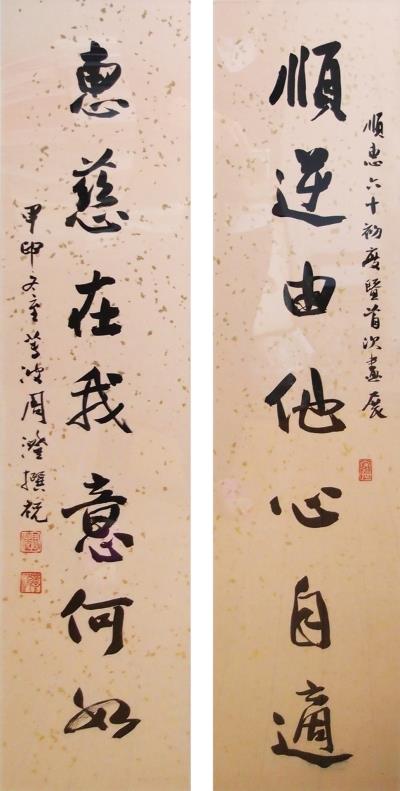 順逆由他心自適
順惠六十初度暨首次畫展
惠慈在我意何如
甲申冬至蓴波周澄撰祝